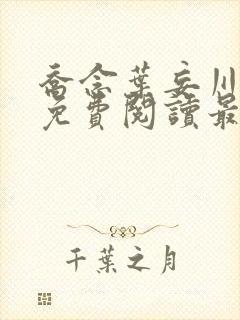 喬念葉妄川
免費閱讀最
千葉之月